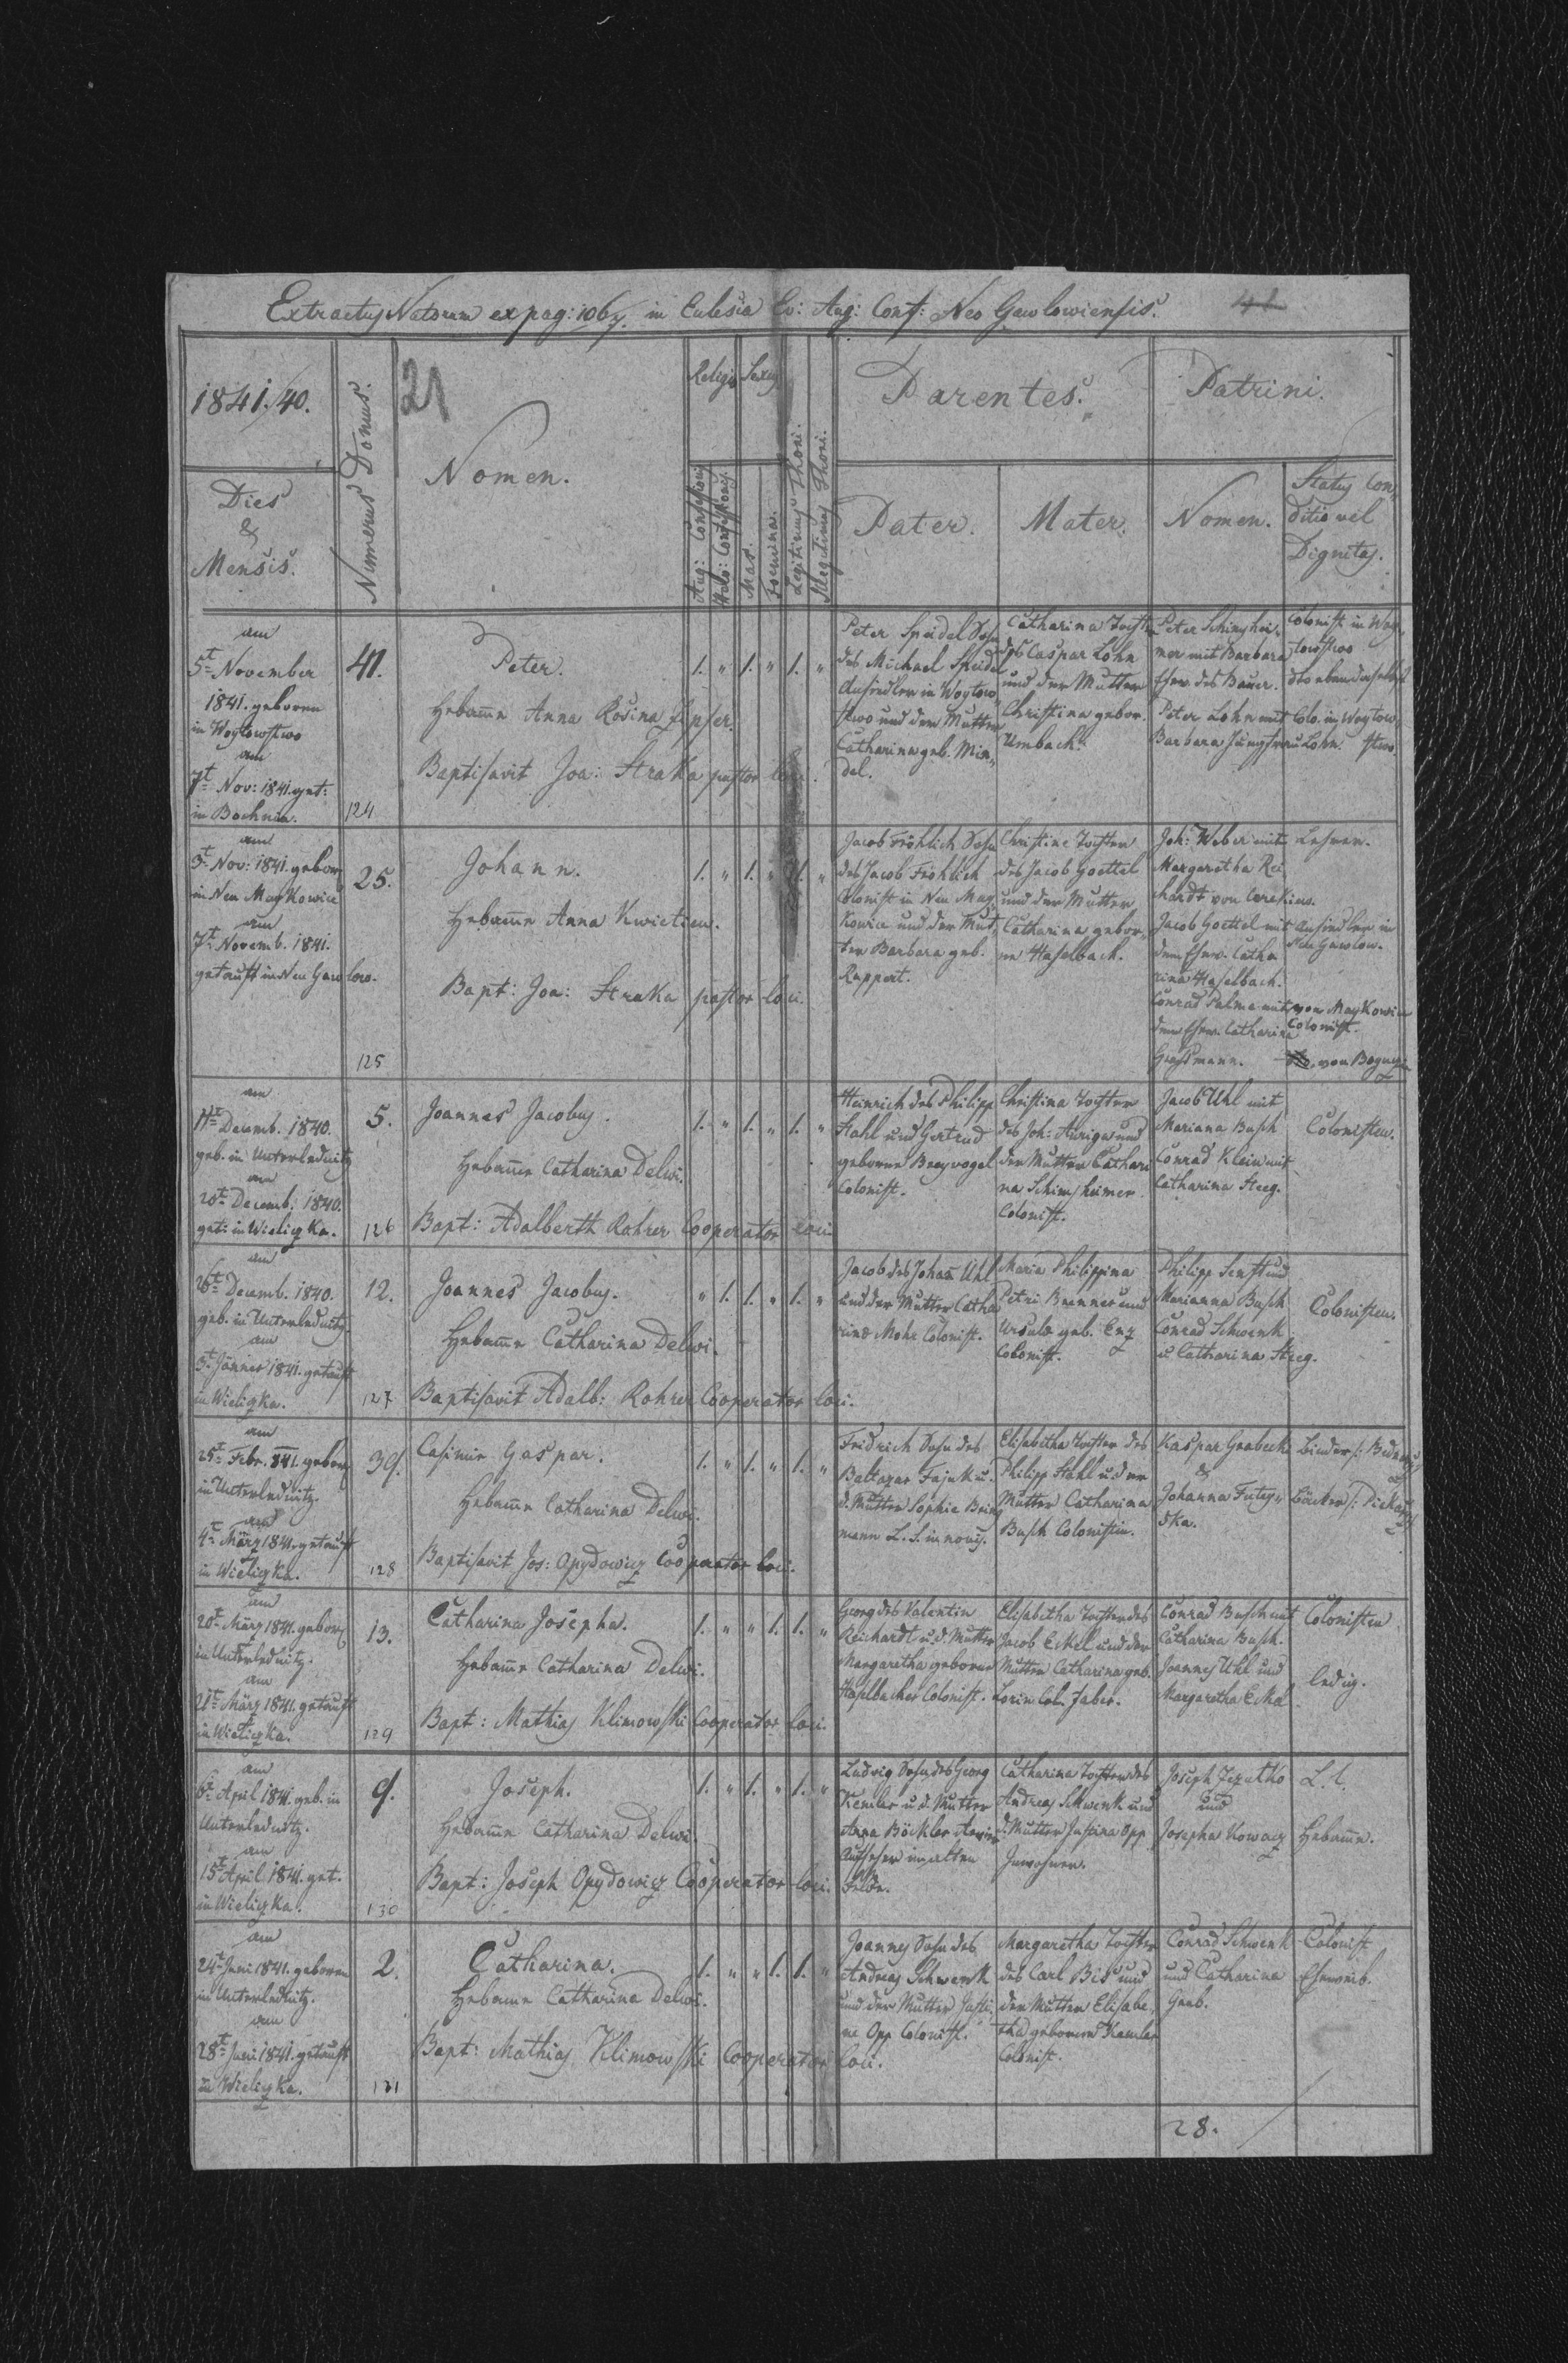 Extractus Natorum ex pag: 106 in Eclesia Ev: Aug: Conf: Neo Gawlowiensis.
1841./40.
Numerus Domus.
21
Nomen.
Religio
Sexus
Parentes.
Patrini.
Dies
&
Mensis.
Aug: Confessionis
Helv: Confessionis
Mas.
Foemina.
Legitimus Thori.
Illegitimus Thori.
Pater.
Mater.
Nomen.
Status Con,
ditio vel
Dignitas.
am
5t November
1841. geboren
in Woytowstwo
am
7t Nov: 1841. get:
in Bochnia.
41.
124
Peter.
Hebamme Anna Rosina Zipser.
Baptisavit Joa: Straka pastor loci.
1. " 1. " 1. "
Peter Speidel Sohn
des Michael Speidel
Ansiedler in Woytow
stwo und der Mutter
Catharina geb. Min,,
del.
Catharina Tochter
des Caspar Lohn
und der Mutter
Christina gebor.
Umbach.
Peter Schimshei,
mer mit Barbara
Ehew. des Bauer.
Peter Lohn mit
Barbara Jungfrau Lohn.
Colonist in Woy,
towstwo
dto ebendaselbst
Colo. in Woytow,
stwo.
am
3t Nov: 1841. geboren
in Neu Maykowice
am
7t Novemb. 1841.
getauft in Neu Gawlow.
25.
125
Johann.
Hebamme Anna Kwiecien.
Bapt: Joa: Straka pastor loci.
1. " 1. " 1. "
Jacob Fröhlich Sohn
des Jacob Fröhlich
Colonist in Neu May
kowice und der Mut,
ter Barbara geb.
Ruppert.
Christine Tochter
des Jacob Goettel
und der Mutter
Catharina gebor,,
ne Haselbach.
Joh: Weber mit
Margaretha Rei
chardt von
Jacob Goettel mit
dem Ehew. Catha
rina Haselbach.
Conrad Palma mit
dem Ehew. Catharina
Grossmann.
Lehrer.
Ansiedler in
Neu Gawlow.
von Maykowice
Colonist.
von Bogucz
am
11t Decemb. 1840.
geb. in Unterlednitz
am
20t Decemb: 1840.
get: in Wieliczka.
5.
126
Joannes Jacobus.
Hebamme Catharina Delwi.
Bapt: Adalberth Rohrer Cooperator loci.
1. " 1. " 1. "
Heinrich des Philipp
Stahl und Gertrud
geborene Bergvogel
Colonist.
Christina Tochter
des Joh: Auriga und
der Mutter Cathari
na Schimsheimer
Colonist.
Jacob Uhl mit
Mariana Busch
Conrad Klein mit
Catharina Steeg.
Colonisten.
am
26t Decemb. 1840.
geb. in Unterlednitz.
am
3t Jänner 1841. getauft
in Wieliczka.
12.
127
Joannes Jacobus.
Hebamme Catharina Delwi.
Baptisavit Adalb: Rohrer Cooperator loci.
" 1. 1. " 1. "
Jacob des Johann Uhl
und der Mutter Catha
rina Mohr Colonist.
Maria Philippina
Petri Brenner und
Ursula geb. Enz
Colonist.
Philipp Senft und
Marianna Busch
Conrad Schwenk
u Catharina Steeg.
Colonisten.
am
25t Febr. 841. geboren
in Unterlednitz.
am
4t März 1841. getauft
in Wieliczka.
39.
128
Casimir Gaspar.
Hebamme Catharina Delwi.
Baptisavit Jos: Opydowicz Cooperator loci.
1. " 1. " 1. "
Fridrich Sohn des
Baltazar Fajak u.
d. Mutter Sophia Berg
mann
Elisabetha Tochter des
Philipp Stahl u der
Mutter Catharina
Busch Colonistin.
Kaspar Grabecki
&
Johanna Futey,,
ska.
Binder
Bäcker
am
20t März 1841. geboren
in Unterlednitz.
am
21t März 1841. getauft
in Wieliczka.
13.
129
Catharina Josepha.
Hebamme Catharina Delwi.
Bapt: Mathias Klimowski Cooperator loci.
1. " " 1. 1. "
Georg des Valentin
Reichardt u. d. Mutter
Margaretha geborene
Haselbacher Colonist.
Elisabetha Tochter des
Jacob Eckel und der
Mutter Catharina geb.
Conrad Busch mit
Catharina Busch.
Joannes Uhl und
Margaretha Eckel
Colonisten
ledig.
am
6t April 1841. geb. in
Unterlednitz.
am
15t April 1841. get.
in Wieliczka.
9.
130
Joseph.
Hebamme Catharina Delwi.
Bapt: Joseph Opydowicz Cooperator loci.
1. " 1. " 1. "
Ludwig Sohn des Georg
Kemler u. d. Mutter
Anna Böckler
Aufseher im alten
Catharina Tochter des
Andreas Schwenk und
d. Mutter Justina Opp
Inwohner.
Joseph Jezutko
und
Josepha Kowacz
L. l.
Hebamme.
am
24t Juni 1841. geboren
in Unterlednitz.
am
28t Juni 1841. getauft
in Wieliczka.
2.
131
Catharina.
Hebamme Catharina Delwi.
Bapt: Mathias Klimowski Cooperator loci.
1. " " 1. 1. "
Joannes Sohn des
Andreas Schwenk
und der Mutter Justi,
ne Opp Colonist.
Margaretha Tochter
des Carl Bis und
der Mutter Elisabe,
tha geborene Kemler
Colonist.
Conrad Schwenk
und Catharina
Colonist
Eheweib.
28.